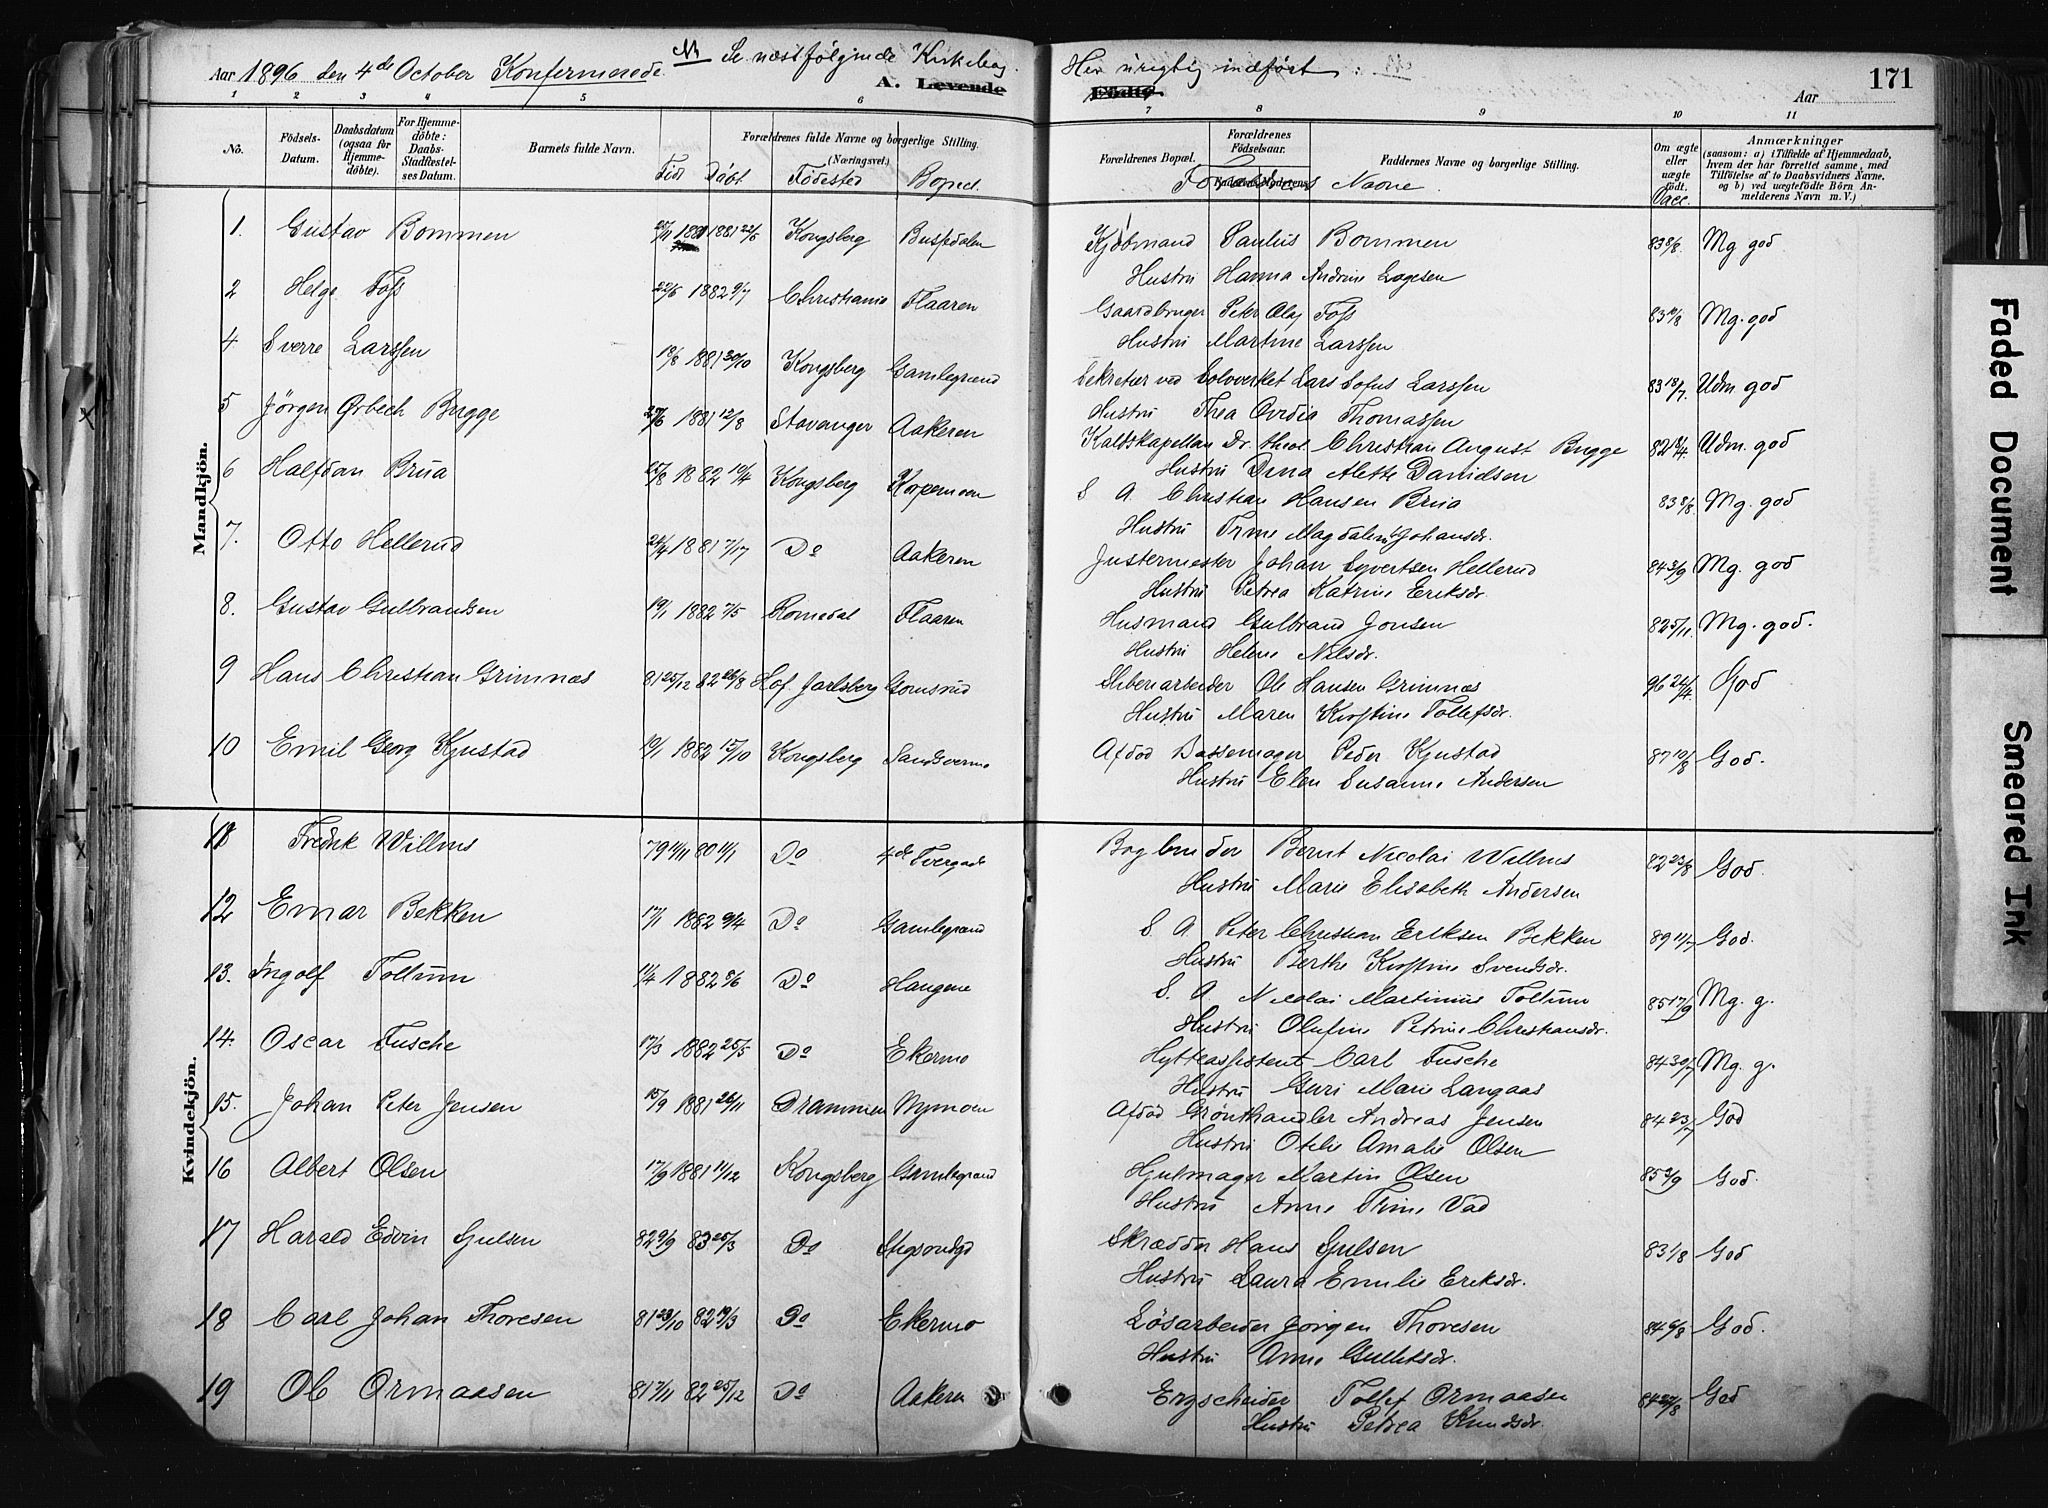 Aar 1896 den 4de October Konfermerede NB Se næstfølgende Kirkebog. Her urigtig indført. 171
A. Levende Födte. Aar
1 2 3 4 5 6 7 8 9 10 11
No. Födsels-Datum. Daabsdatum (ogsaa for Hjemme-döbte). For Hjemme-döbte: Daabs-Stadfæstel-ses Datum. Barnets fulde Navn. Forældrenes fulde Navne og borgerlige Stilling. (Næringsvei.) Forældrenes Bopæl. Forældrenes Födselsaar. Faderens Moderens Faddernes Navne og borgerlige Stilling. Om ægte eller uægte födt. Anmærkninger (saasom: a) i Tilfælde af Hjemmedaab, hvem der har forrettet samme, med Tilföielse af to Daabsvidners Navne. og b) ved uægtefödte Börn An-melderens Navn m. V.)
Födt Döbt Födested Bopæl. Forældrenes Navne. Vacc.
Mandkjön.
1. Gustav Bommen 1881 22/5 Kongsberg Bussdalen Kjöbmand Paulus Bommen 83 8/8 Mg god
Hustru Hanna Andrine
2 Helge Foss 22/5 1882 9/7 Christiania Flaaren Gaardbruger Peter Olaj Foss Mg. god
Hustru Martine Larssen
4 Sverre Larssen 1881 30/10 Kongsberg Gamlegrænd Sekretær ved Sølvverket Lars Sofus Larssen 83 18/7 Udm god
Hustru Thea Ovidia Thomassen
5 Jörgen Ørbech Bugge 1881 12/8 Stavanger Aakeren Kaldskapellan Dr. theol. Christian August Bugge Udm. god
Hustru Dina Alette Danidsen
6 Halfdan Brua 1882 10/4 Kongsberg Korpemoen S. A. Christian Hansen Brua 83 8/8 Mg. god
Hustru Trine Magdalene Johansdr.
7. Otto Hellerud 24/4 1881 7/17 Do Aakeren Justermester Johan Syvertsen Hellerud 84 3/9 Mg. god
Hustru Petrea Katrine Eriksdr.
8. Gustav Gulbrandsen 19/1 1882 7/5 Romedal Flaaren Husmand Gulbrand Jonsen 82 5/11 Mg. god.
Hustru Helene Nilsdr.
9 Hans Christian Grimnæs 81 25/12 82 26/8 Hof. Jarlsberg Gomsrud Sliberiarbeider Ole Hansen Grimnæs 96 24/4 God
Hustru Maren Kirstine Tollefsdr.
10 Emil Georg Kjustad 19/1 1882 15/10 Kongsberg Sandsverme Afdöd Bøssemager Peder Kjustad 87 19/8 God.
Hustru Elen Susanne Andersen
Kvindekjön.
11 Fredrik Willms 79 11/11 80 11/1 Do 4de Tvergade Bogbinder Bernt Nicolai Willms 82 23/8 God.
Hustru Marie Elisabeth Andersen
12 Einar Bekken 17/1 1882 9/4 Do Gamlegrænd S. A. Peter Christian Eriksen Bekken 89 11/7 God.
Hustru Berthe Kirstine Svendsdr.
13. Ingolf Toltum 1/4 1882 8/6 Do Haugene S. A. Nicolai Martinius Toltum 85 17/9 Mg. g.
Hustru Olufine Petrine Christiansdr.
14. Oscar Fusche 17/3 1882 25/5 Do Ekermo Hytteassistent Carl Fusche 84 30/7 Mg. g.
Hustru Guri Marie Langaas
15. Johan Peter Jensen 15/9 1881 26/11 Drammen Nymoen Afdöd Grönthandler Andreas Jensen 84 23/7 God
Hustru Otilie Amalie Olsen
16 Albert Olsen 17/9 1881 11/12 Kongsberg Gamlegrænd Hjulmager Martin Olsen 85 3/9 God.
Hustru Anne Trine Vad
17 Harald Edvin Gjulsen 82 9/9 83 25/3 Do Skrædder Hans Gjulsen 83 1/8 God
Hustru Laura Emilie Eriksdr.
18 Carl Johan Thoresen 81 23/10 82 19/3 Do Ekermo Lösarbeider Jörgen Thoresen 84 6/8 God.
Hustru Anne Gulliksdr.
19 Ole Ormaasen 81 7/11 82 25/12 Do Aakeren Ergscheider Tollef Ormaasen 84 27/8 God
Hustru Petrea Knudsdr.
Faded Document
Smeared Ink